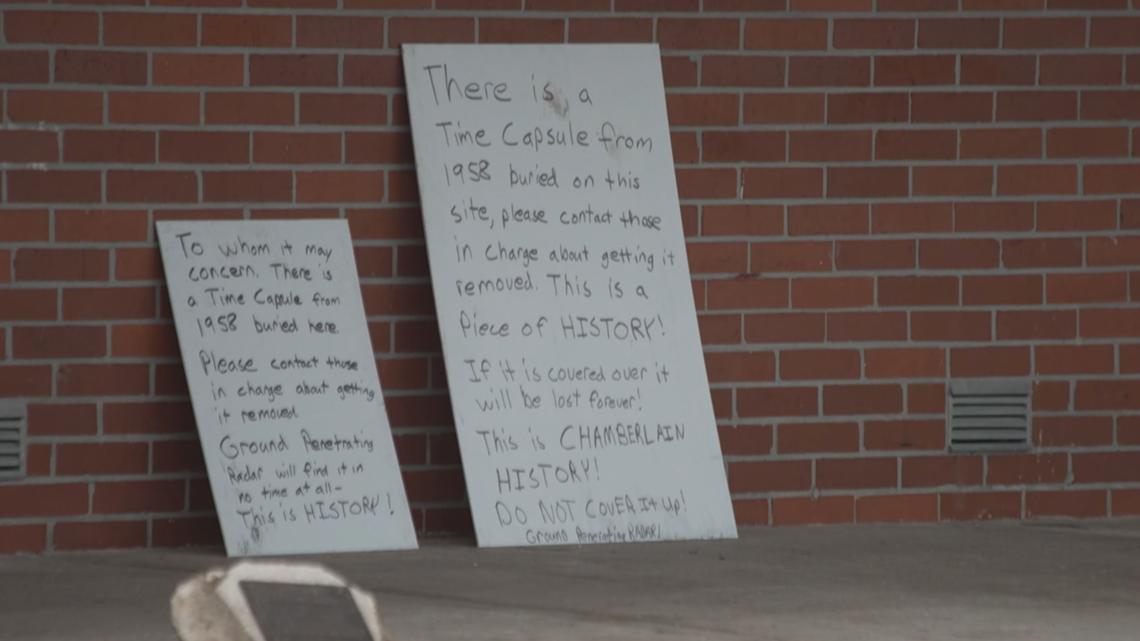 To whom it may
concern. There is
a Time Capule from
1958 buried here.
Please contact those
in charge about getting
it removed
Ground Penetrating
Radar will find it in
no time at all-
This is HISTORY!
There is a
Time Capsule from
1958 buried on this
site, please contact those
in charge about getting it
removed. This is a
Piece of HISTORY!
If it is covered over it
will be lost forever!
This is CHAMBERLAIN
HISTORY!
DO NOT COVER It Up!
Ground Penetrating RADAR!